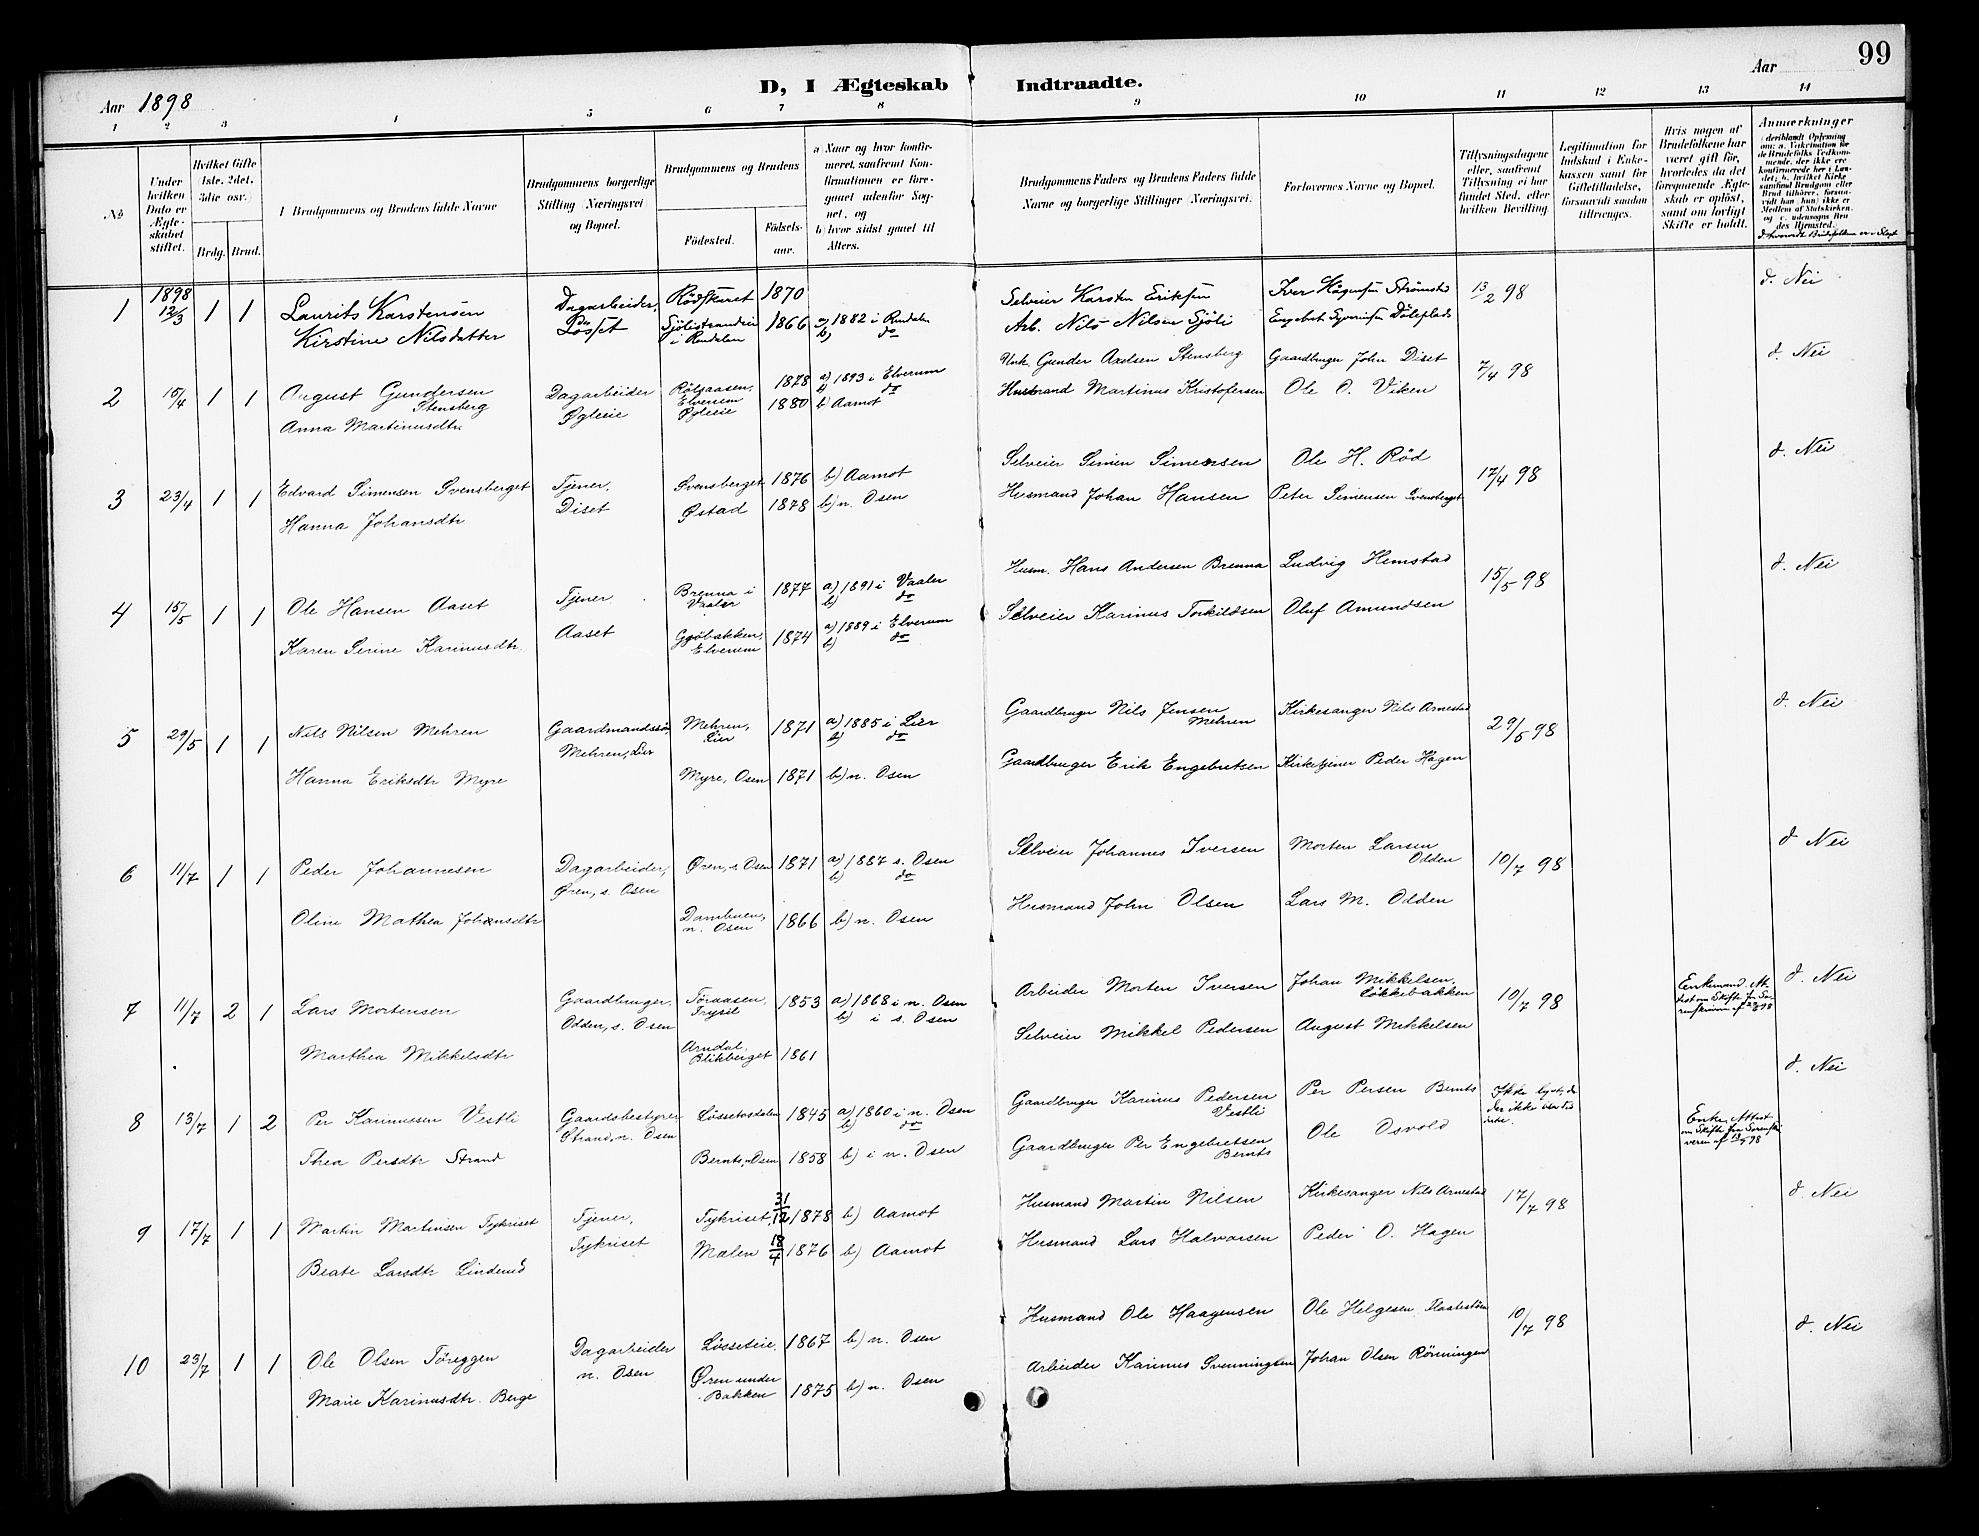 99
D, I Ægteskab Indtraadte.
Aar 1898
Aar
1 2 3 4 5 6 7 8 9 10 11 12 13 14
No
Under hvilken Dato er Ægteskabet stiftet.
Hvilket Gifte 1ste, 2det, 3die osv.)
Brdg. Brud.
Brudgommens og Brudens fulde Navne
Brudgommens borgerlige Stilling (Næringsvei) og Bopæl.
Brudgommens og Brudens
Fødested.
Fødselsaar.
a Naar og hvor konfirmeret, saafremt Konfirmationen er foregaaet udenfor Sognet, og
b) hvor sidst gaaet til Alters.
Brudgommens Faders og Brudens Faders fulde Navne og borgerlige Stillinger (Næringsvei.
Forlovernes Navne og Bopæl.
Tillysningsdagene eller, saafremt Tillysning ei har fundet Sted, efter hvilken Bevilling.
Legitimation for Indskud i Enkekassen samt for Giftetilladelse, forsaavidt saadan tiltrænges.
Hvis nogen af Brudefolkene har været gift før, hvorledes da det foregaaende Ægteskab er opløst, samt om lovligt Skifte er holdt.
Anmærkninger
(deriblandt Oplysning om: a. Vakcination for de Brudefolks Vedkommende, der ikke ere konfirmerede her i Landet; b. hvilket Kirkesamfund Brudgom eller Brud tilhører, forsaavidt han (hun) ikke er Medlem af Statskirken, og c. udensogns Brudes Hjemsted.
d. hvorvidt Brudefolkene er i Slægt
1 1898 12/3 1 1 Laurits Karstensen Dagarbeider, Rödskaret 1870 Selveier Karsten Eriksen Iver Hågensen Strømstad 13/2 98 d. Nei
Kirstine Nilsdatter Løsset Sjølistranden i Rendalen 1866 a) 1882 i Rendalen b) do Arb. Nils Nilsen Sjöli Engebret Syversen Döleplads
2 15/4 1 1 August Gundersen Stensberg Dagarbeider Elverum 1878 a) 1893 i Elverum b) do Gunder Axelsen Stensberg Gaardbruger John Diset 7/4 98 d. Nei
Anna Martinusdtr Øgleeie Øgleeie 1880 b) Aamot Husmand Martinus Kristofersen Ole O. Viken
3 23/4 1 1 Edvard Simensen Svensberget Tjener, Svensberget 1876 b) Aamot Selveier Simen Simensen Ole H. Rød 17/4 98 d. Nei
Hanna Johansdtr Diset Østad 1878 b) n. Osen Husmand Johan Hansen Peter Simensen Svensberget
4 15/5 1 1 Ole Hansen Aaset Tjener Brenna i Vaaler 1877 a) 1891 i Vaaler b) do Husm. Hans Andersen Brenna Ludvig Hemstad 15/5 98 d. Nei
Karen Serine Karinusdtr. Aaset Gjøbakken, Elverum 1874 a) 1889 i Elverum b) do Selveier Karinus Torkildsen Oluf Amundsen
5 29/5 1 1 Nils Nilsen Mehren Gaardmandssøn Mehren, Lier 1871 a) 1885 i Lier b) do Gaardbruger Nils Jensen Mehren Kirkesanger Nils Arnestad 29/5 98 d. Nei
Hanna Eriksdtr Myre Mehren, Lier Myre, Osen 1871 b) n. Osen Gaardbruger Erik Engebretsen Kirketjener Peder Hagen
6 11/7 1 1 Peder Johannesen Dagarbeider, Øren, s. Osen Øren, s. Osen 1871 a) 1887 s. Osen b) do Selveier Johannes Iversen Morten Larsen Odden 10/7 98 d. Nei
Oline Mathea Johansdtr Dambuen, n. Osen 1866 b) n. Osen Husmand John Olsen Lars M. Odden
7 11/7 2 1 Lars Mortensen Gaardbruger, Odden, s. Osen Töraasen, Trysil 1853 a) 1868 i n. Osen b) i s. Osen Arbeider Morten Iversen Johan Mikkelsen, Løkkebakken 10/7 98 Enkemand Attest om Skifte fra Sorenskriveren af d. Nei
Marthea Mikkelsdtr Arndal, Blikberget 1861 Selveier Mikkel Pedersen August Mikkelsen
8 13/7 1 2 Per Karinussen Vestli Gaardsbestyrer Strand, n. Osen Løssetosdalen 1845 a) 1860 i n. Osen b) do Gaardbruger Karinus Pedersen Vestli Per Persen Bernts Ikke lyst, da der ikke Enke, Attest om Skifte fra Sorenskriveren af d. Nei
Thea Persdtr Strand Bernts, n. Osen 1858 b) i n. Osen Gaardbruger Per Engebretsen Bernts Ole Osvold
9 17/7 1 1 Martin Martinsen Tykriset Tjener, Tykriset, 31/12 1878 b) Aamot Husmand Martin Nilsen Kirkesanger Nils Arnestad 17/7 98 d. Nei
Beate Larsdtr Linderud Tykriset Malen 18/4 1876 b) Aamot Husmand Lars Halvorsen Peder O. Hagen
10 23/7 1 1 Ole Olsen Töreggen Dagarbeider n. Osen Løsseteie, 1867 b) n. Osen Husmand Ole Haagensen Ole Helgesen 10/7 98 d. Nei
Marie Karinusdtr. Berge Øren under Bakken 1875 b) n. Osen Arbeider Karinus Svenningsen Johan Olsen Rönningen